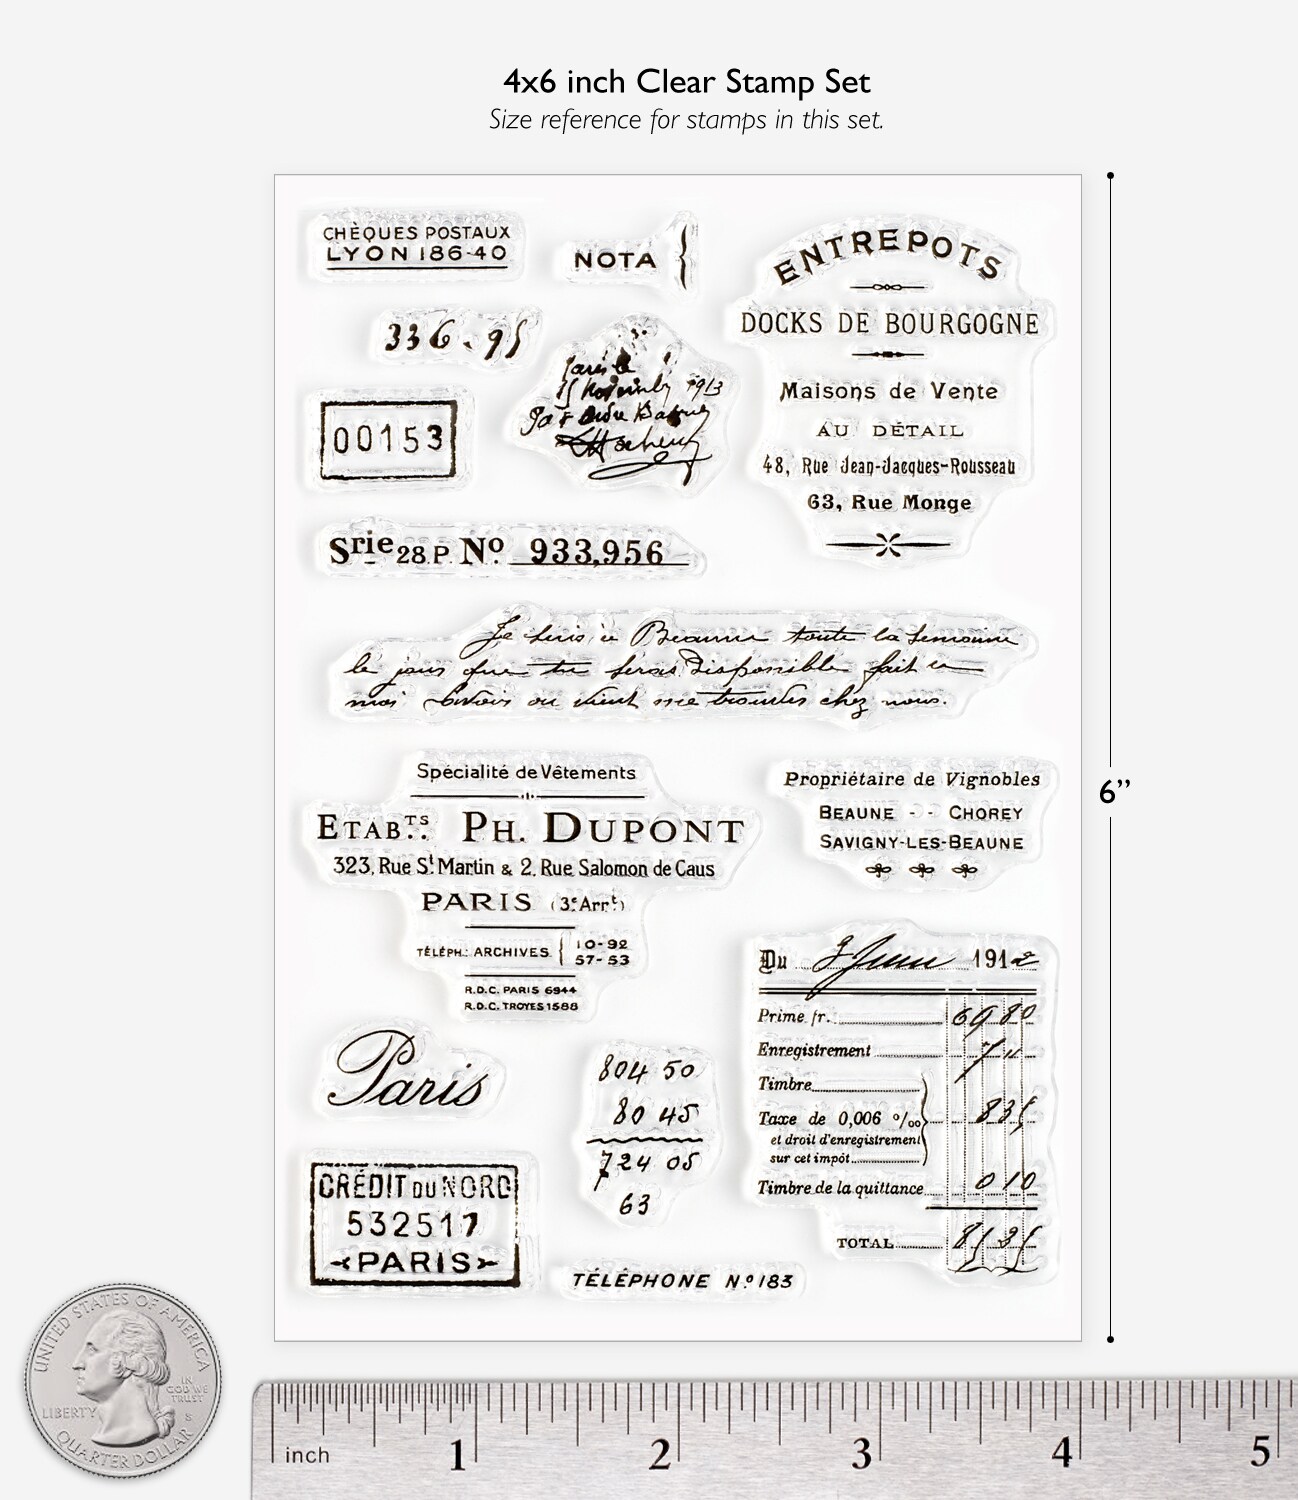 4x6 inch Clear Stamp Set
Size reference for stamps in this set.
CHÈQUES POSTAUX
LYON 186-40
NOTA
336.95
1913
00153
ENTREPOTS
DOCKS DE BOURGOGNE
Maisons de Vente
AU DÉTAIL
48, Rue Jean-Jacques-Rousseau
63, Rue Monge
Srie 28 P. Nº 933,956
Je suis à Beaune toute la semaine
le jour que tu seras Disponible fait le
moi savoir ou vient me trouver chez nous.
Spécialité de Vêtements
ETABTS. PH. DUPONT
323, Rue St. Martin & 2, Rue Salomon de Caus
PARIS (3e Arrt)
TÉLÉPH.: ARCHIVES { 10-92
57-53
R.D.C. PARIS 6944
R.D.C. TROYES 1588
Propriétaire de Vignobles
BEAUNE - - CHOREY
SAVIGNY-LES-BEAUNE
6”
Du 3 Juin 1912
Prime fr. 69 80
Enregistrement 7
Timbre
Taxe de 0,006 ‰ 835
et droit d'enregistrement
sur cet impôt
Timbre de la quittance 010
TOTAL
Paris
804 50
80 45
724 05
63
CRÉDIT DU NORD
532517
PARIS
TÉLÉPHONE Nº 183
UNITED STATES OF AMERICA
IN
GOD WE
TRUST
LIBERTY
S
QUARTER DOLLAR
inch 1 2 3 4 5